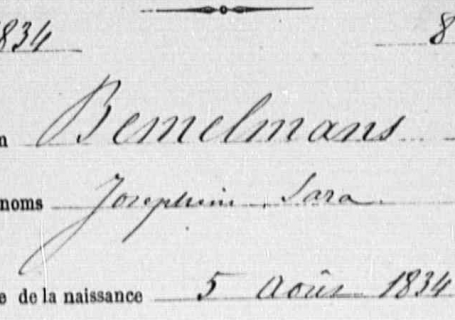 1834 8
n Bemelmans
noms Josephine Sara
e de la naissance 5 Août 1834